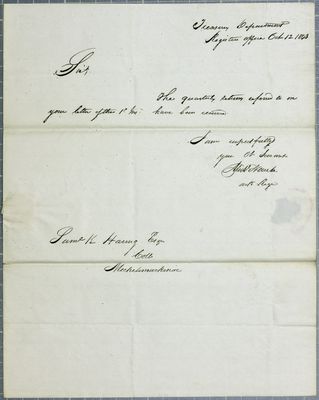 Treasury Department
Register office Oct 12 1843
Sir,
The quarterly returns referred to in
your letter of the 1st Inst. have been received
I am respectfully
your Ob Servant
Actg Regr
Saml K Haring Esq
Coll